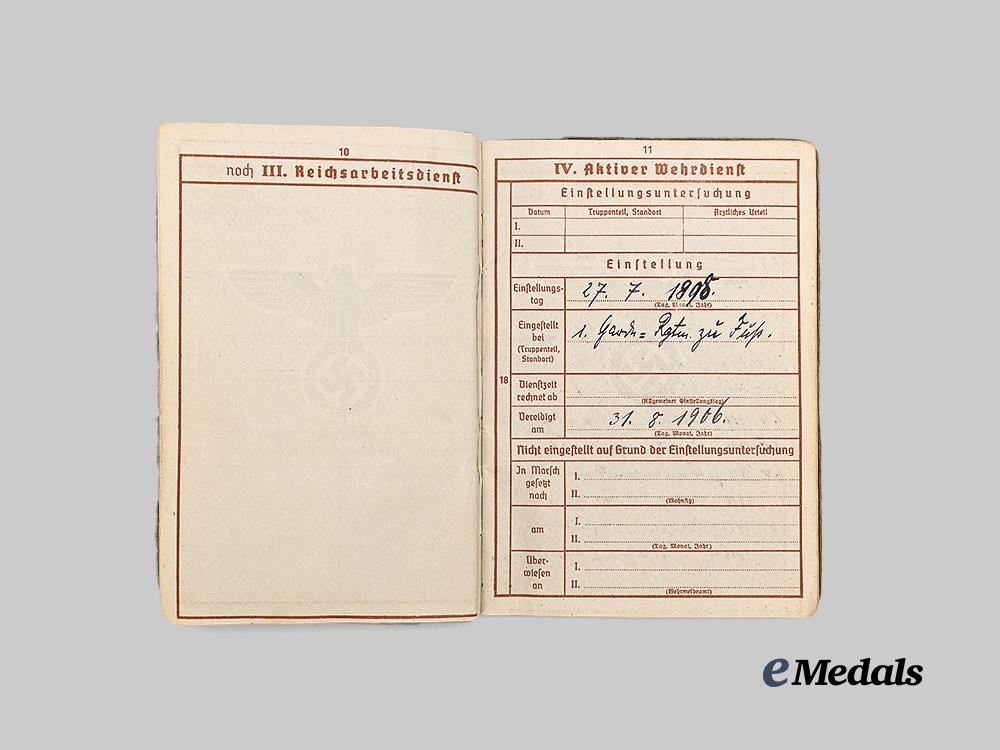 10
noch III. Reichsarbeitsdienst
11
IV. Aktiver Wehrdienst
Einstellungsuntersuchung
Datum Truppenteil, Standort Ärztliches Urteil
I.
II.
Einstellung
Einstellungs-
tag
27. 7. 1898.
(Tag, Monat, Jahr)
Eingestellt
bei
(Truppenteil,
Standort)
1. Garde= Rgtm. zu Fuß.
18
Dienstzeit
rechnet ab
(Allgemeiner Einstellungstag)
Vereidigt
am
31. 8. 1906.
(Tag, Monat, Jahr)
Nicht eingestellt auf Grund der Einstellungsuntersuchung
In Marsch
gesetzt
nach
I.
II.
(Wohnsitz)
am
I.
II.
(Tag, Monat, Jahr)
Über-
wiesen
an
I.
II.
(Wehrmeldeamt)
eMedals